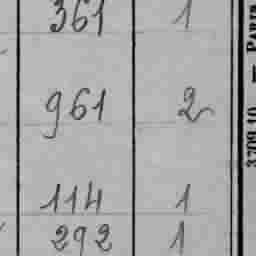 361 1
961 2
114 1
292 1
3709.10 — PARIS